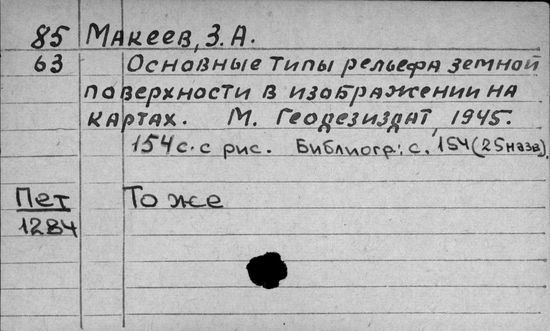 85 Макеев, З. А.
63 Основные типы рельефа земной
поверхности в изображении на
картах. М. Геодезиздат, 1945.
154 с. с рис. Библиогр: с. 154 (25 назв).
Пет То же
1284